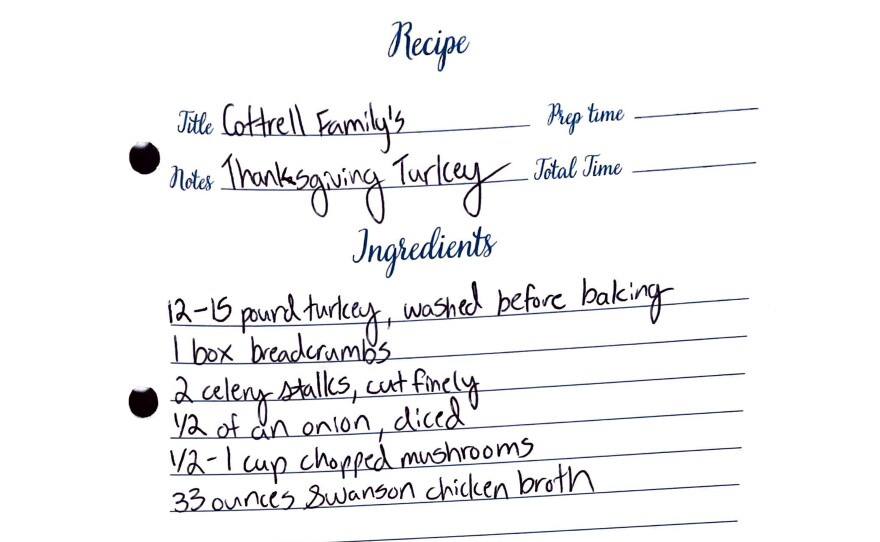 Recipe
Title Cottrell Family's Prep time
Notes Thanksgiving Turkey Total Time
Ingredients
12-15 pound turkey, washed before baking
1 box breadcrumbs
2 celery stalks, cut finely
1/2 of an onion, diced
1/2-1 cup chopped mushrooms
33 ounces Swanson chicken broth